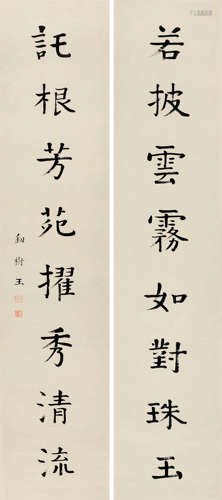 若披雲霧如對珠玉
託根芳苑擢秀清流
鈕樹玉